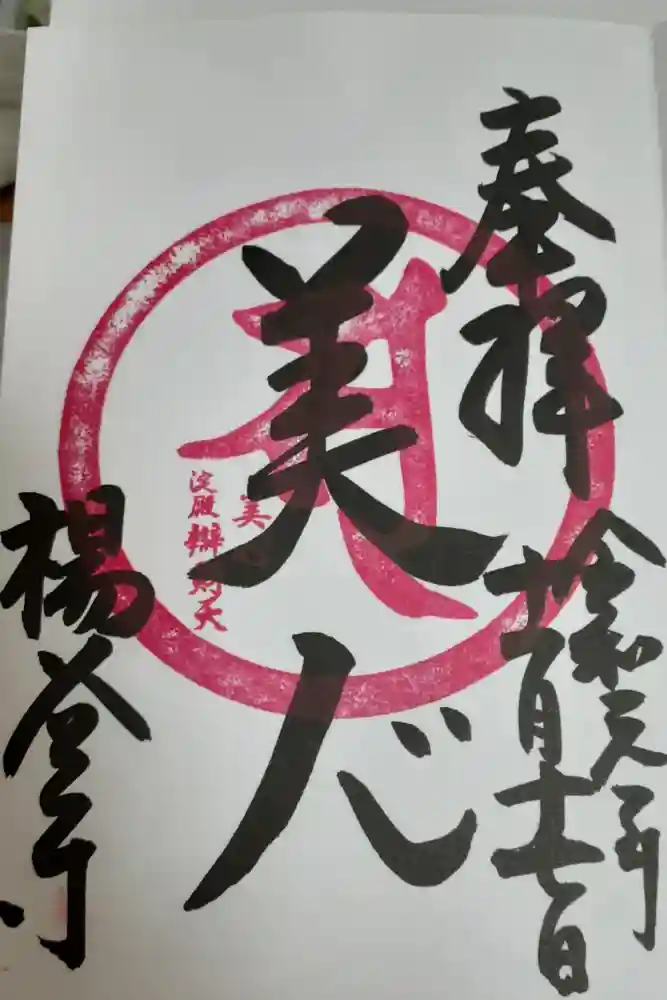 奉拝
令和元年
十一月十七日
美心
美心
淀殿辯財天
楊谷寺